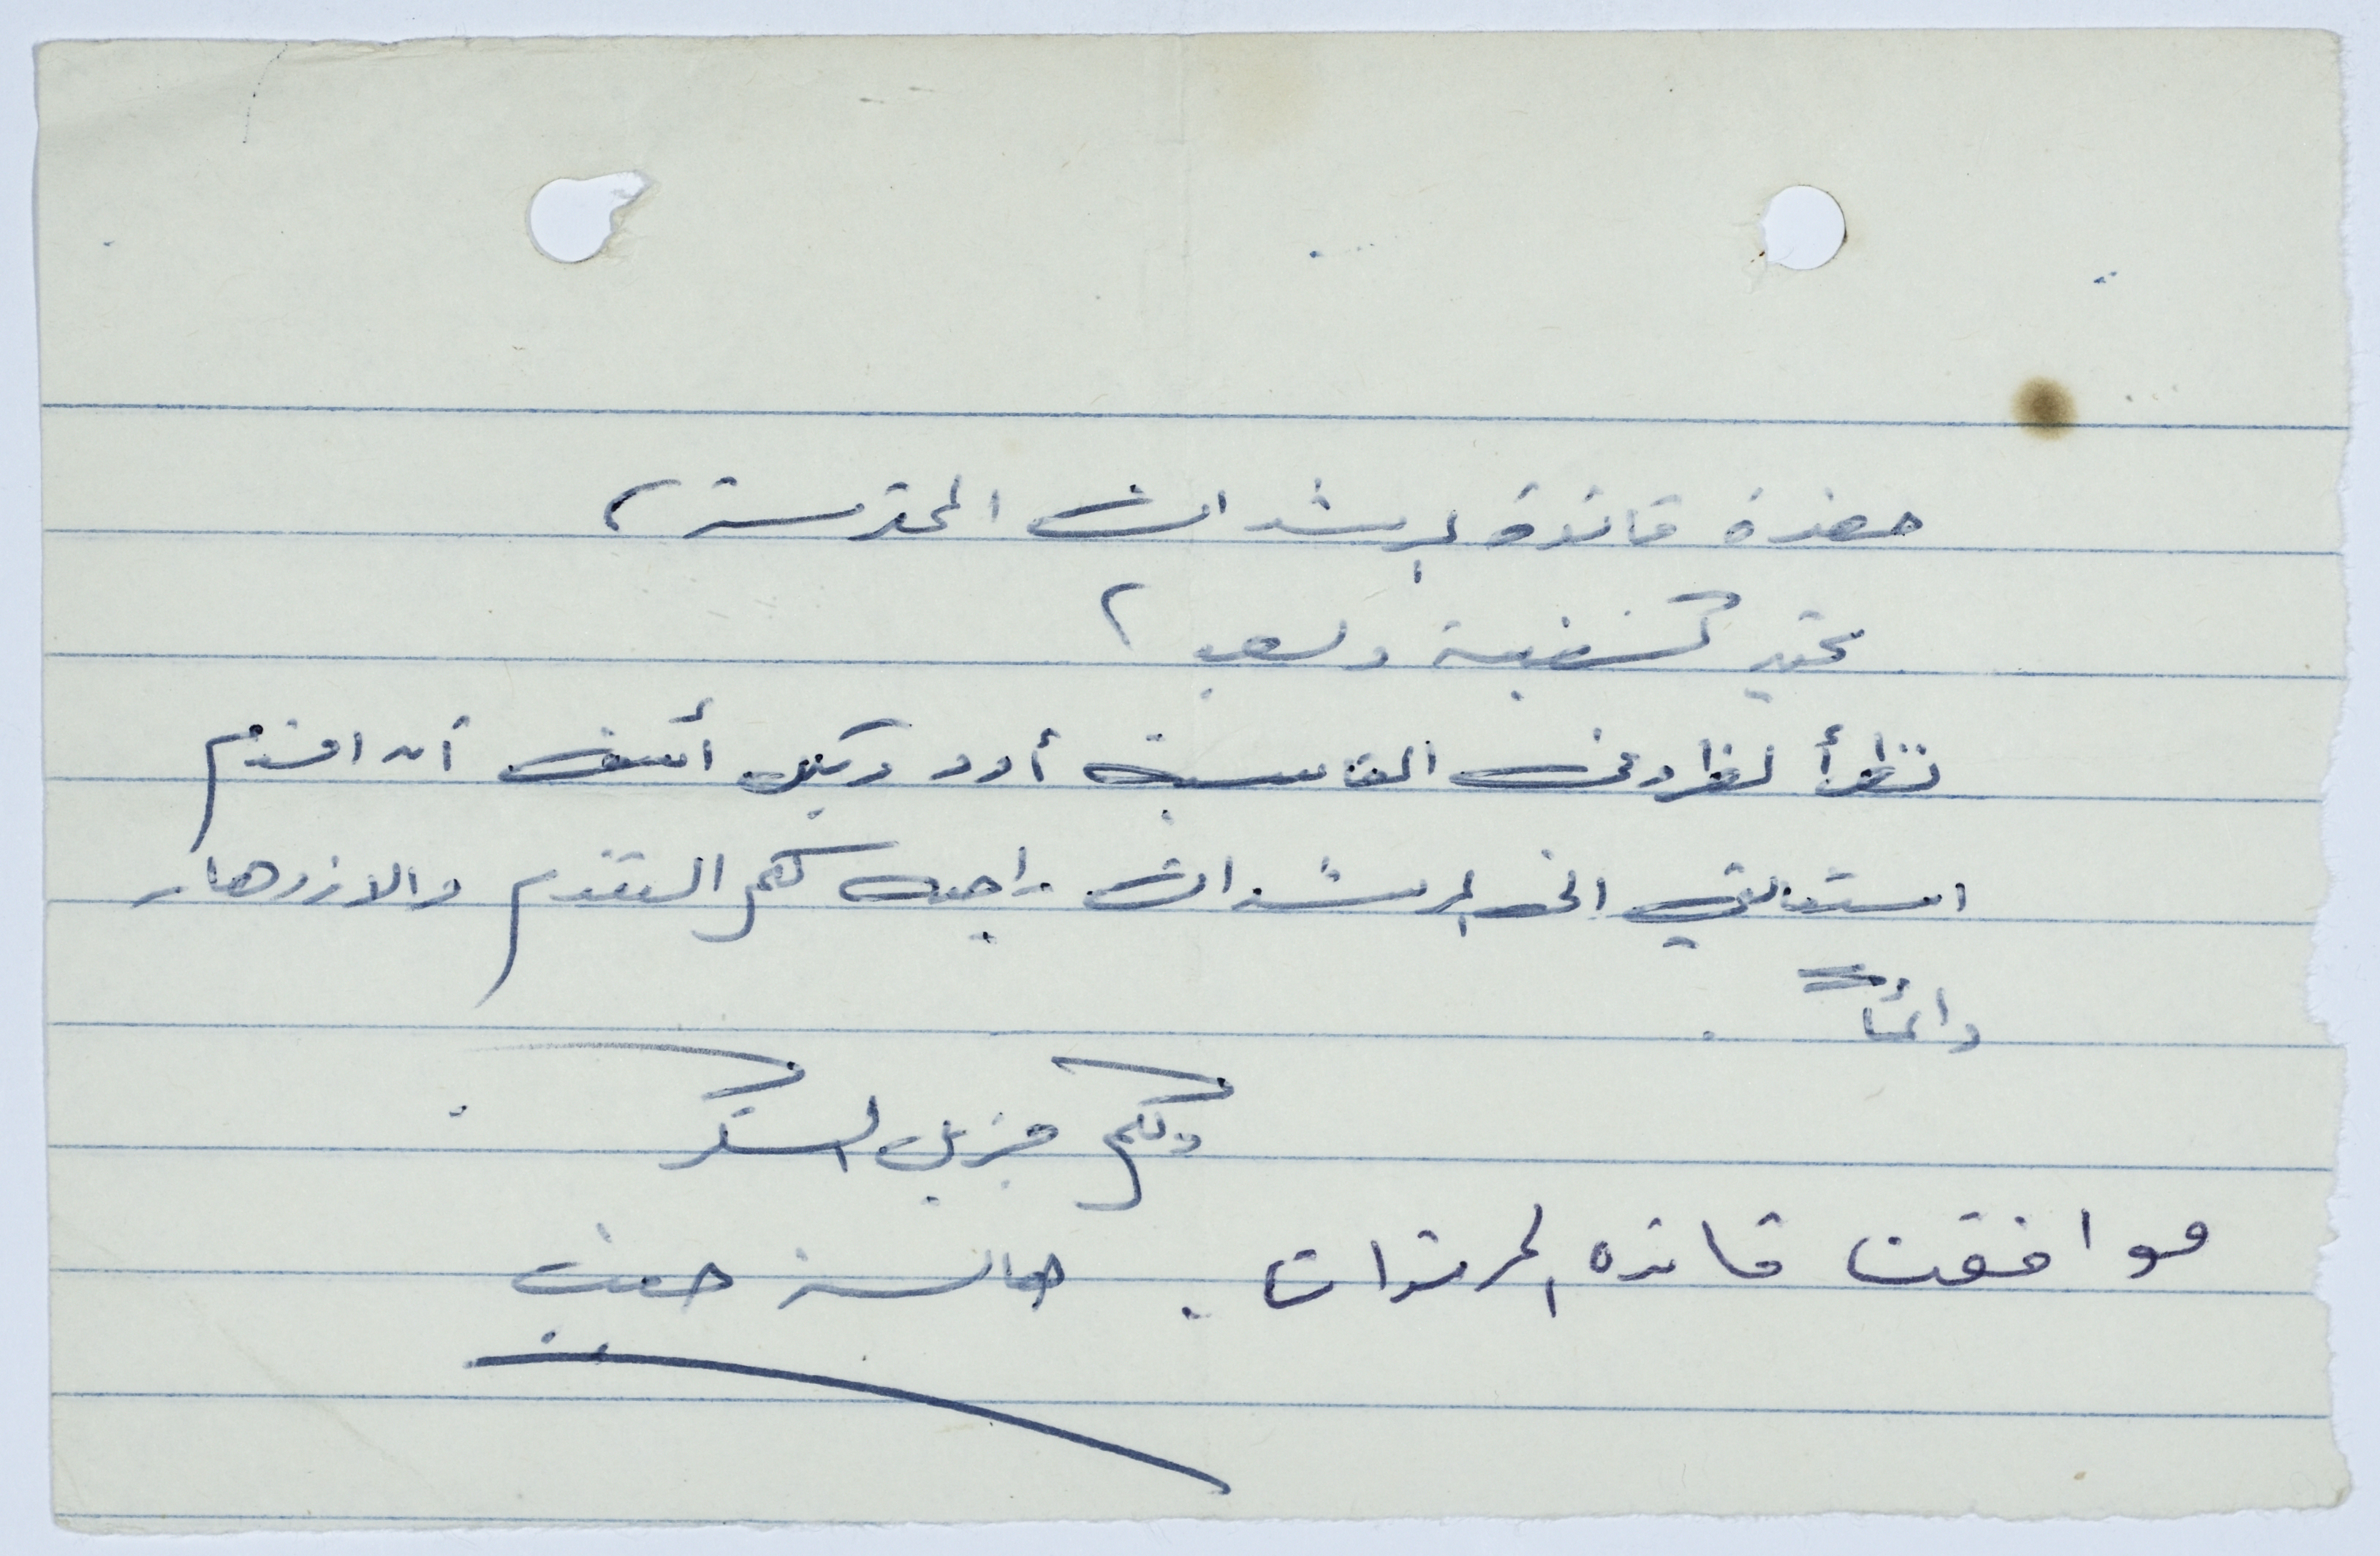 حضرة قائدة المرشدات المحترمة،
تحية كشفية وبعد،
نظراً لظروفي القاسية أود وبكل أسف أن اقدم
استقالتي الى المرشدات راجيه لكم التقدم والازدهار
دائماً.
ولكم جزيل الشكر
موافقت قائده المرشدات.
هالة